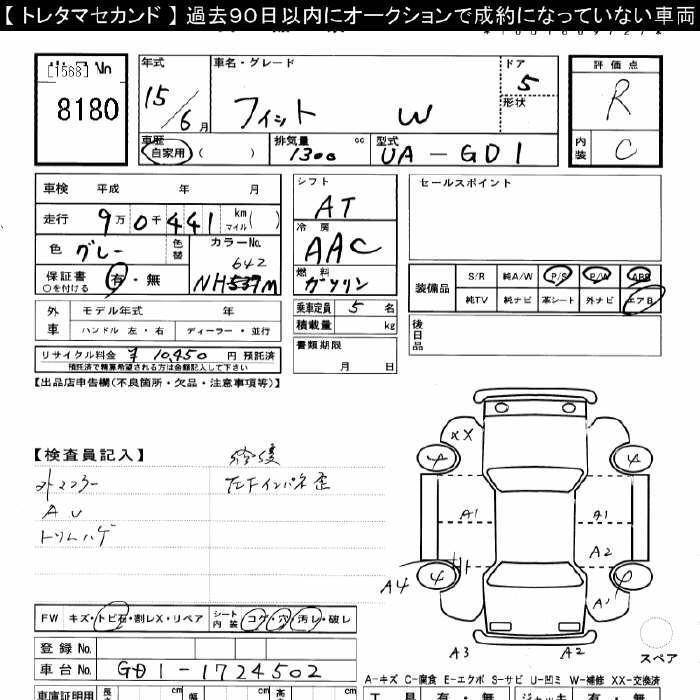 【トレタマセカンド】過去90日以内にオークションで成約になっていない車両
[1568] Vn
8180
年式 車名・グレード ドア 評価点
15/6月 フィット W 5 R
形状
車歴 自家用 ( ) 排気量 1300 cc 型式 UA-GD1 内装 C
車検 平成 年 月
走行 9万0千441 km マイル ( )
色 グレー 色替 カラーNo. 642
NH537M
保証書 ○を付ける 有・無
シフト AT
冷房 AAC
燃料 ガソリン
乗車定員 5 名
積載量 kg
書類期限
月 日
セールスポイント
装備品 S/R 純A/W P/S P/W ABS
純TV 純ナビ 革シート 外ナビ エアB
後日品
外車 モデル年式 年
ハンドル 左・右 ディーラー・並行
リサイクル料金 ¥10,450 円 預託済
預託済で精算希望される方は金額記入して下さい
【出品店申告欄(不良箇所・欠品・注意事項等)】
【検査員記入】 修復
A U
トリムハゲ
XX
A1 A1
A2
A4
A3 A2
スペア
FW キズ・トビ石・割レX・リペア シート内装 コゲ・穴・汚レ・破レ
登録No.
車台No. GD1-1724502
A-キズ C-腐食 E-エクボ S-サビ U-凹ミ W-補修 XX-交換済
車庫証明用 長 cm 幅 cm 高 cm 工具 有・無 ジャッキ 有・無